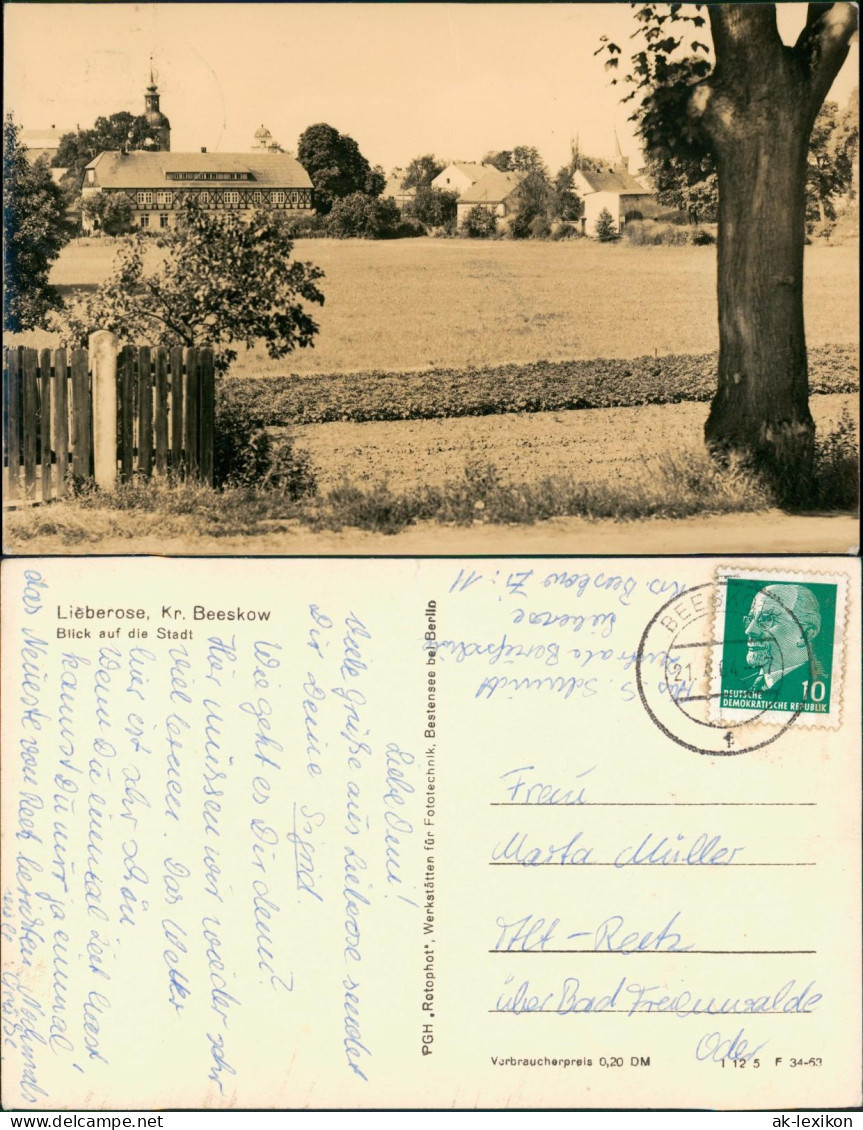 Lieberose, Kr. Beeskow
Blick auf die Stadt
Liebe Omi!
Viele Grüße aus Lieberose sendet
Dir Deine Sigrid.
Wie geht es Dir denn?
Hier müssen wir wieder sehr
viel lernen. Das Wetter
hier ist sehr schön
Wenn Du einmal Zeit hast
kannst Du mir ja einmal
das Neueste von Reetz berichten. Nochmals
viele Grüße
PGH „Rotophot", Werkstätten für Fototechnik, Bestensee bei Berlin
Abs. S. Schmidt
Zentrale Berufsschule
Lieberose
Krs. Beeskow Zi: 11
BEESKOW
21.
f
DEUTSCHE
DEMOKRATISCHE REPUBLIK
10
Frau
Marta Müller
Alt-Reetz
über Bad Freienwalde
Oder
Verbraucherpreis 0,20 DM
I 12 5 F 34-63
ak-lexikon